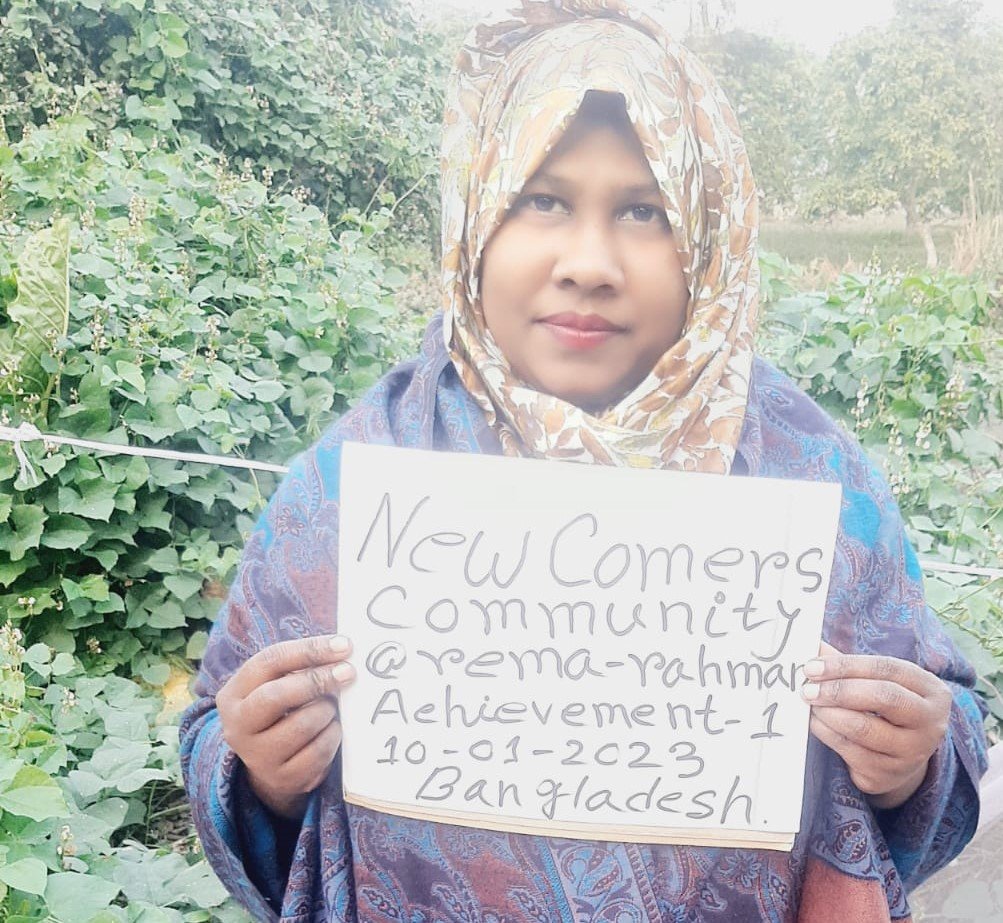 New Comers
Community
@rema-rahman
Achievement-1
10-01-2023
Bangladesh.